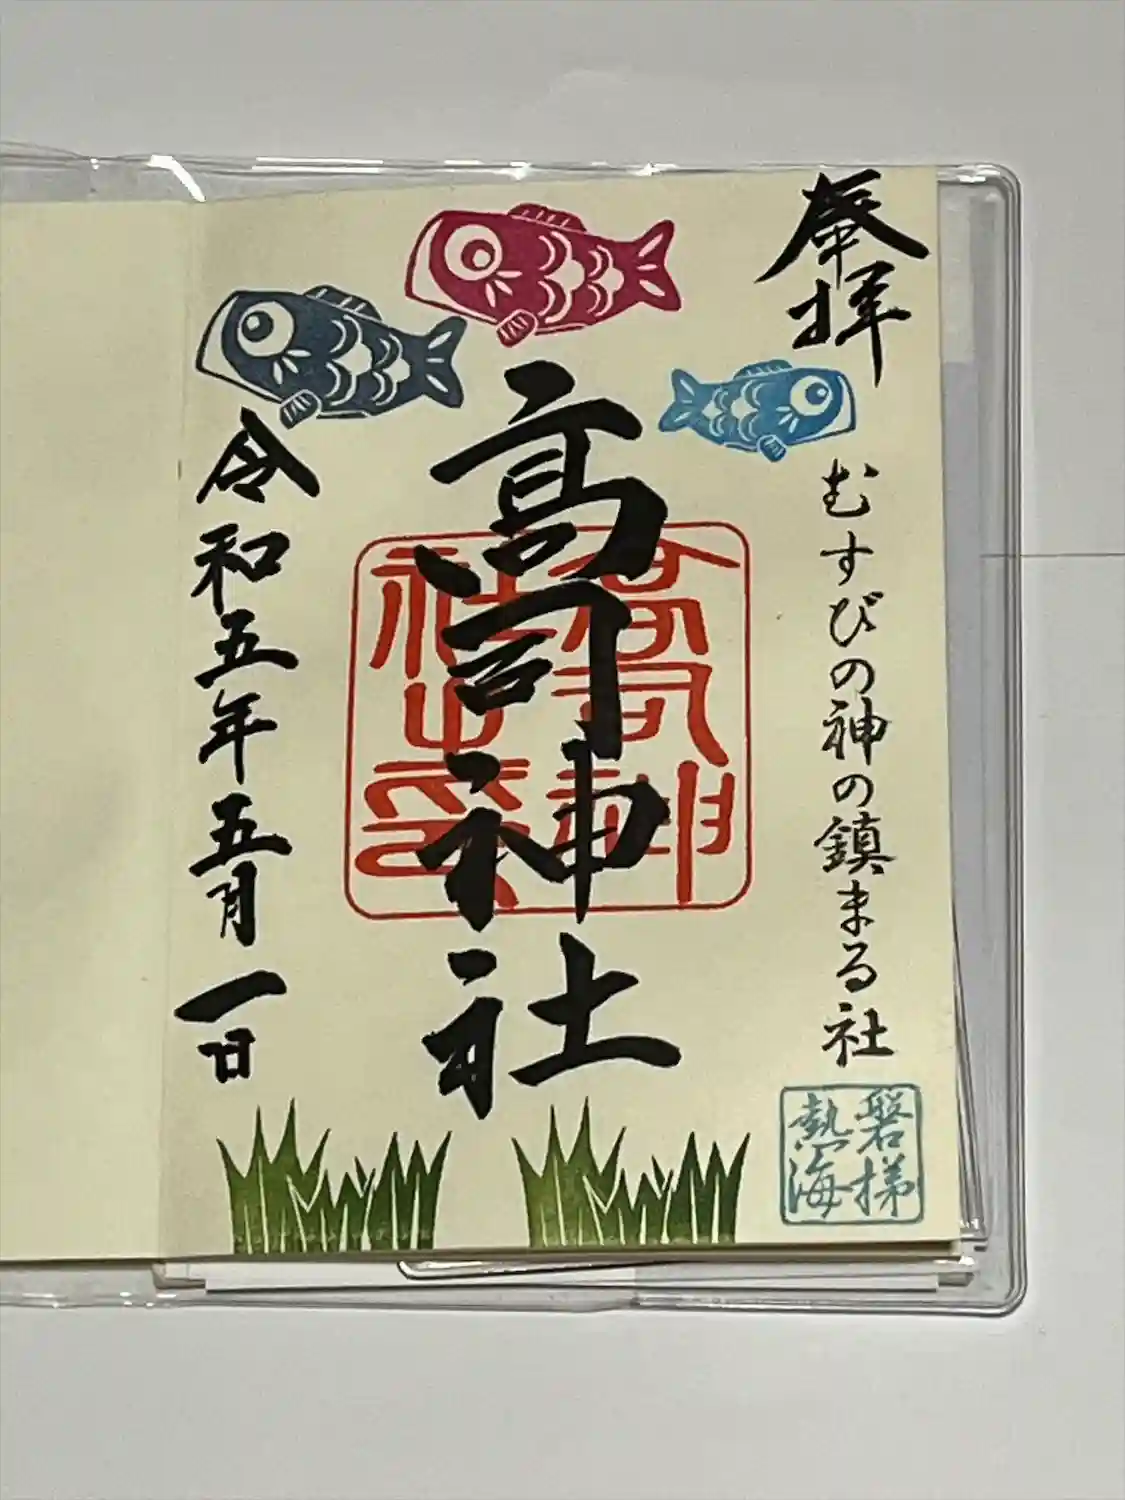 奉拝
むすびの神の鎮まる社
磐梯
熱海
高司神社
高司神
社之印
令和五年五月一日